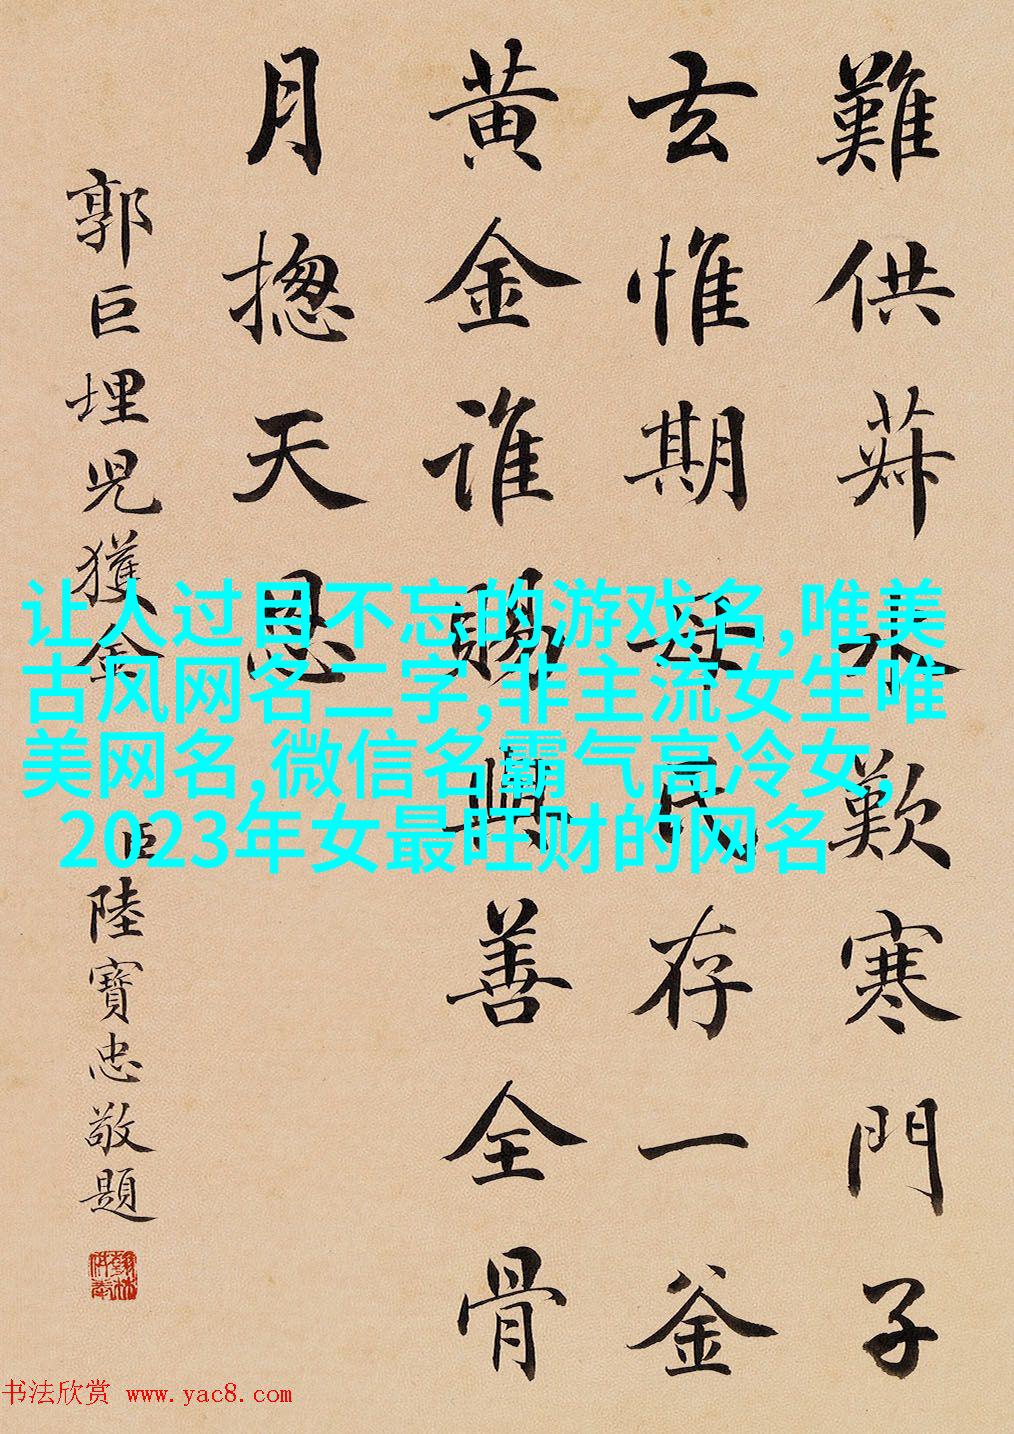 難供菽水歎寒門子
玄惟期母氏存一釜
黄金誰賜與善全骨
月揔天恩
郭巨埋児獲金
臣陸寶忠敬題
让人过目不忘的游戏名,唯美
古风网名二字,非主流女生唯
美网名,微信名霸气高冷女,
2023年女最旺财的网名
书法欣赏 www.yac8.com